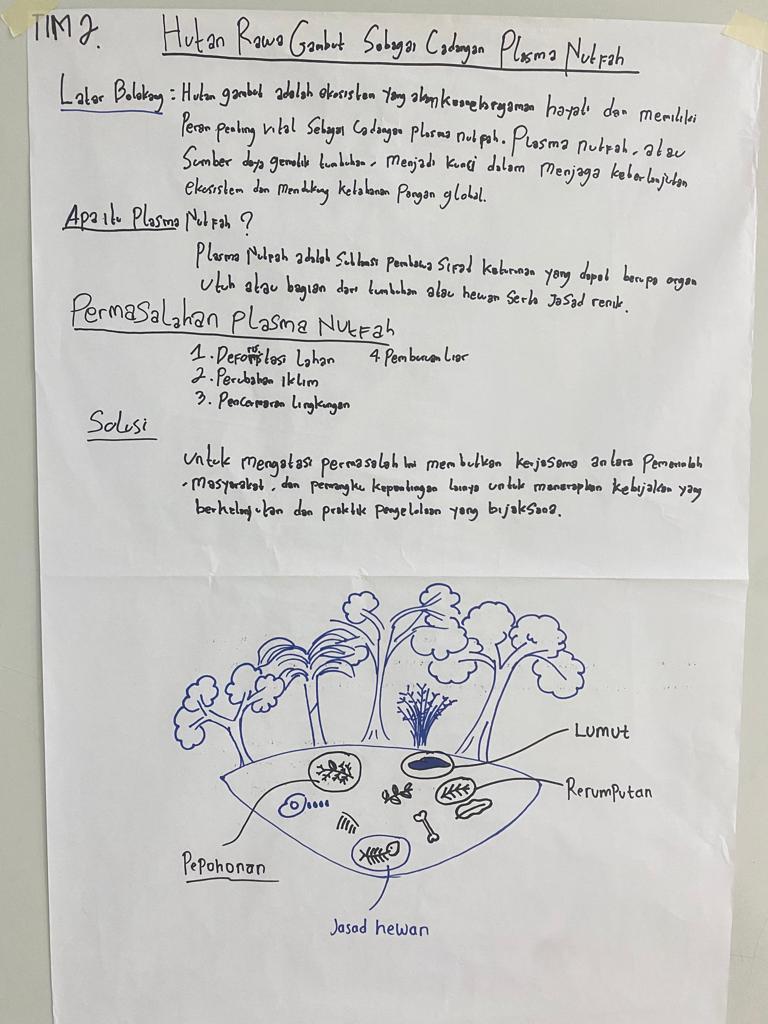 TIM 2.
Hutan Rawa Gambut Sebagai Cadangan Plasma Nutfah
Latar Belakang : Hutan gambut adalah ekosistem yang akan keanekaragaman hayati dan memiliki
Peran penting vital Sebagai Cadangan plasma nutfah. Plasma nutfah, atau
Sumber daya genetik tumbuhan, menjadi kunci dalam menjaga keberlanjutan
ekosistem dan mendukung ketahanan Pangan global.
Apa itu Plasma Nutfah ?
Plasma Nutfah adalah Subtansi pembawa Sifat keturunan yang dapat berupa organ
Utuh atau bagian dari tumbuhan atau hewan serta Jasad renik.
Permasalahan Plasma Nutfah
1. Deforestasi Lahan 4 Pemburuan Liar
2. Perubahan Iklim
3. Pencemaran Lingkungan
Solusi
Untuk mengatasi permasalah ini membutkan kerjasama antara Pemerintah
, masyarakat, dan pemangku kepentingan lainya untuk menerapkan kebijakan yang
berkelanjutan dan praktik pengelolaan yang bijaksana.
Lumut
Rerumputan
Pepohonan
Jasad hewan